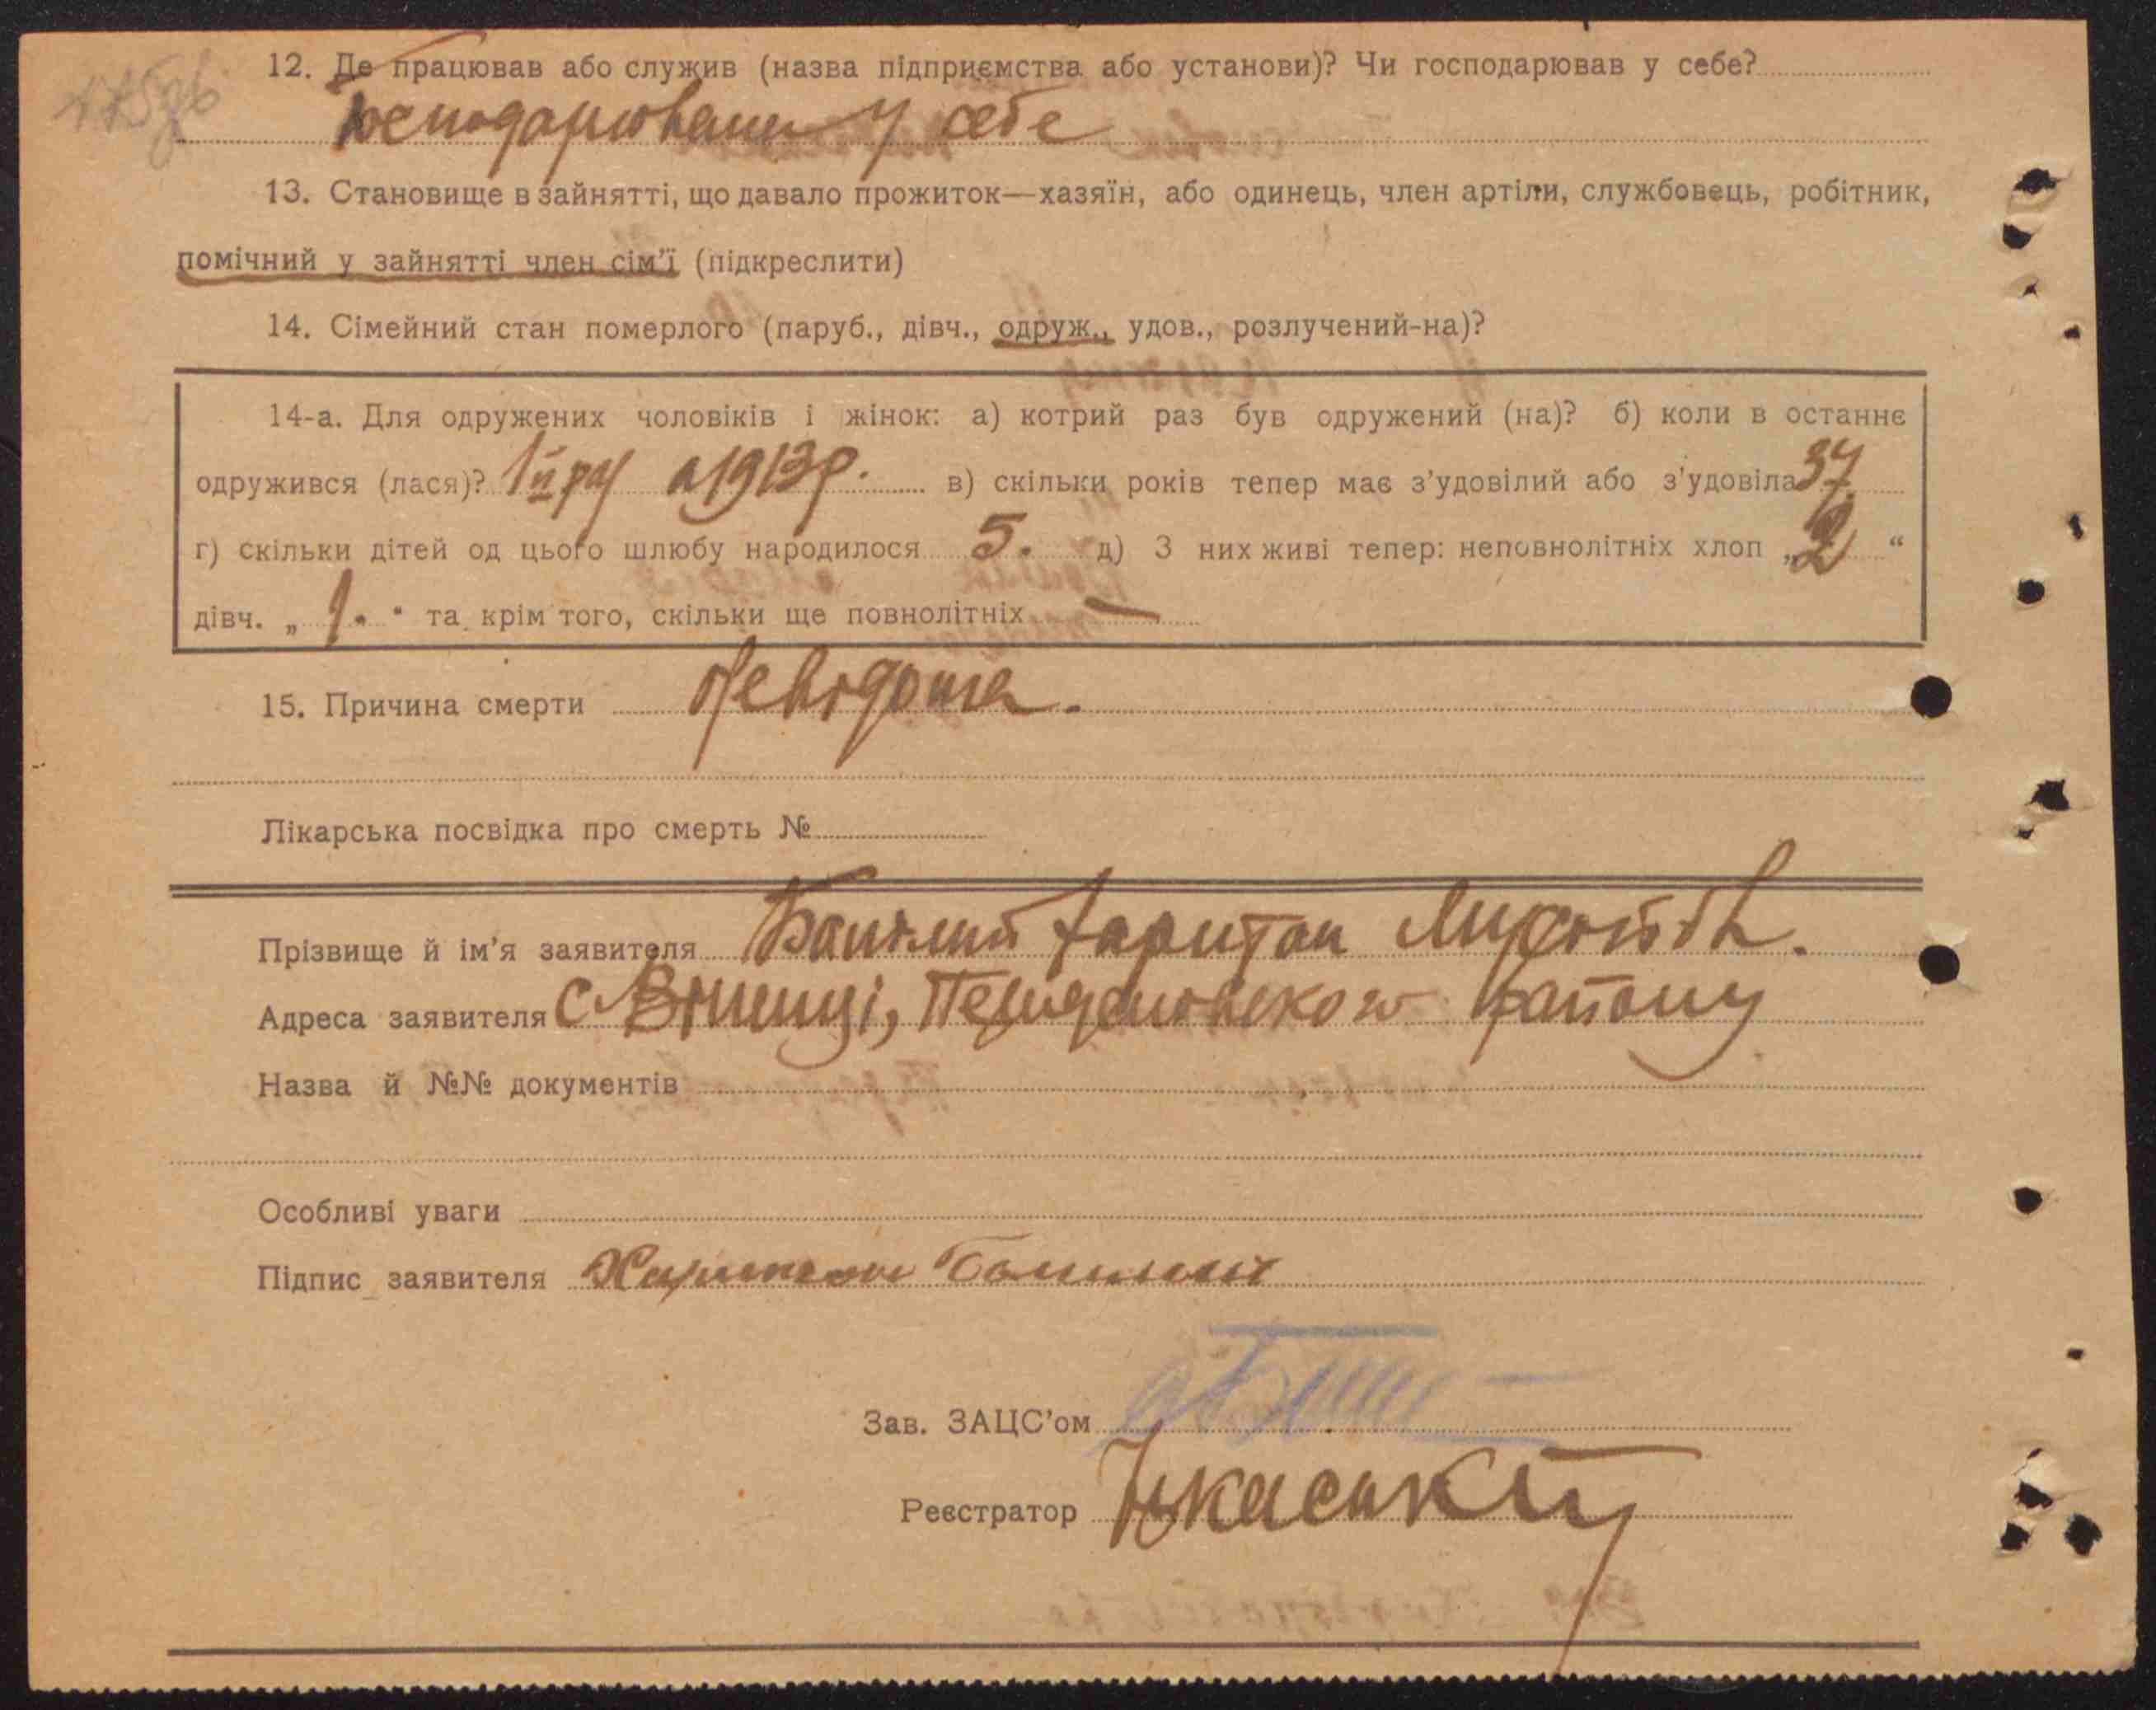 12. Де працював або служив (назва підприємства або установи)? Чи господарював у себе?
господарювала у себе
13. Становище в зайнятті, що давало прожиток—хазяїн, або одинець, член артіли, службовець, робітник,
помічний у зайнятті член сім'ї (підкреслити)
14. Сімейний стан померлого (паруб., дівч., одруж., удов., розлучений-на)?
14-а. Для одружених чоловіків і жінок: а) котрий раз був одружений (на)? б) коли в останнє
одружився (лася)? 1й раз 1913р. в) скільки років тепер має з'удовілий або з'удовіла 37
г) скільки дітей од цього шлюбу народилося 5. д) З них живі тепер: неповнолітніх хлоп „ 2 “
дівч. „ 1. “ та крім того, скільки ще повнолітніх —
15. Причина смерти Невідома.
Лікарська посвідка про смерть №
Прізвище й ім'я заявителя Харитон
Адреса заявителя с району
Назва й №№ документів
Особливі уваги
Підпис заявителя Харитон
Зав. ЗАЦС'ом
Реєстратор